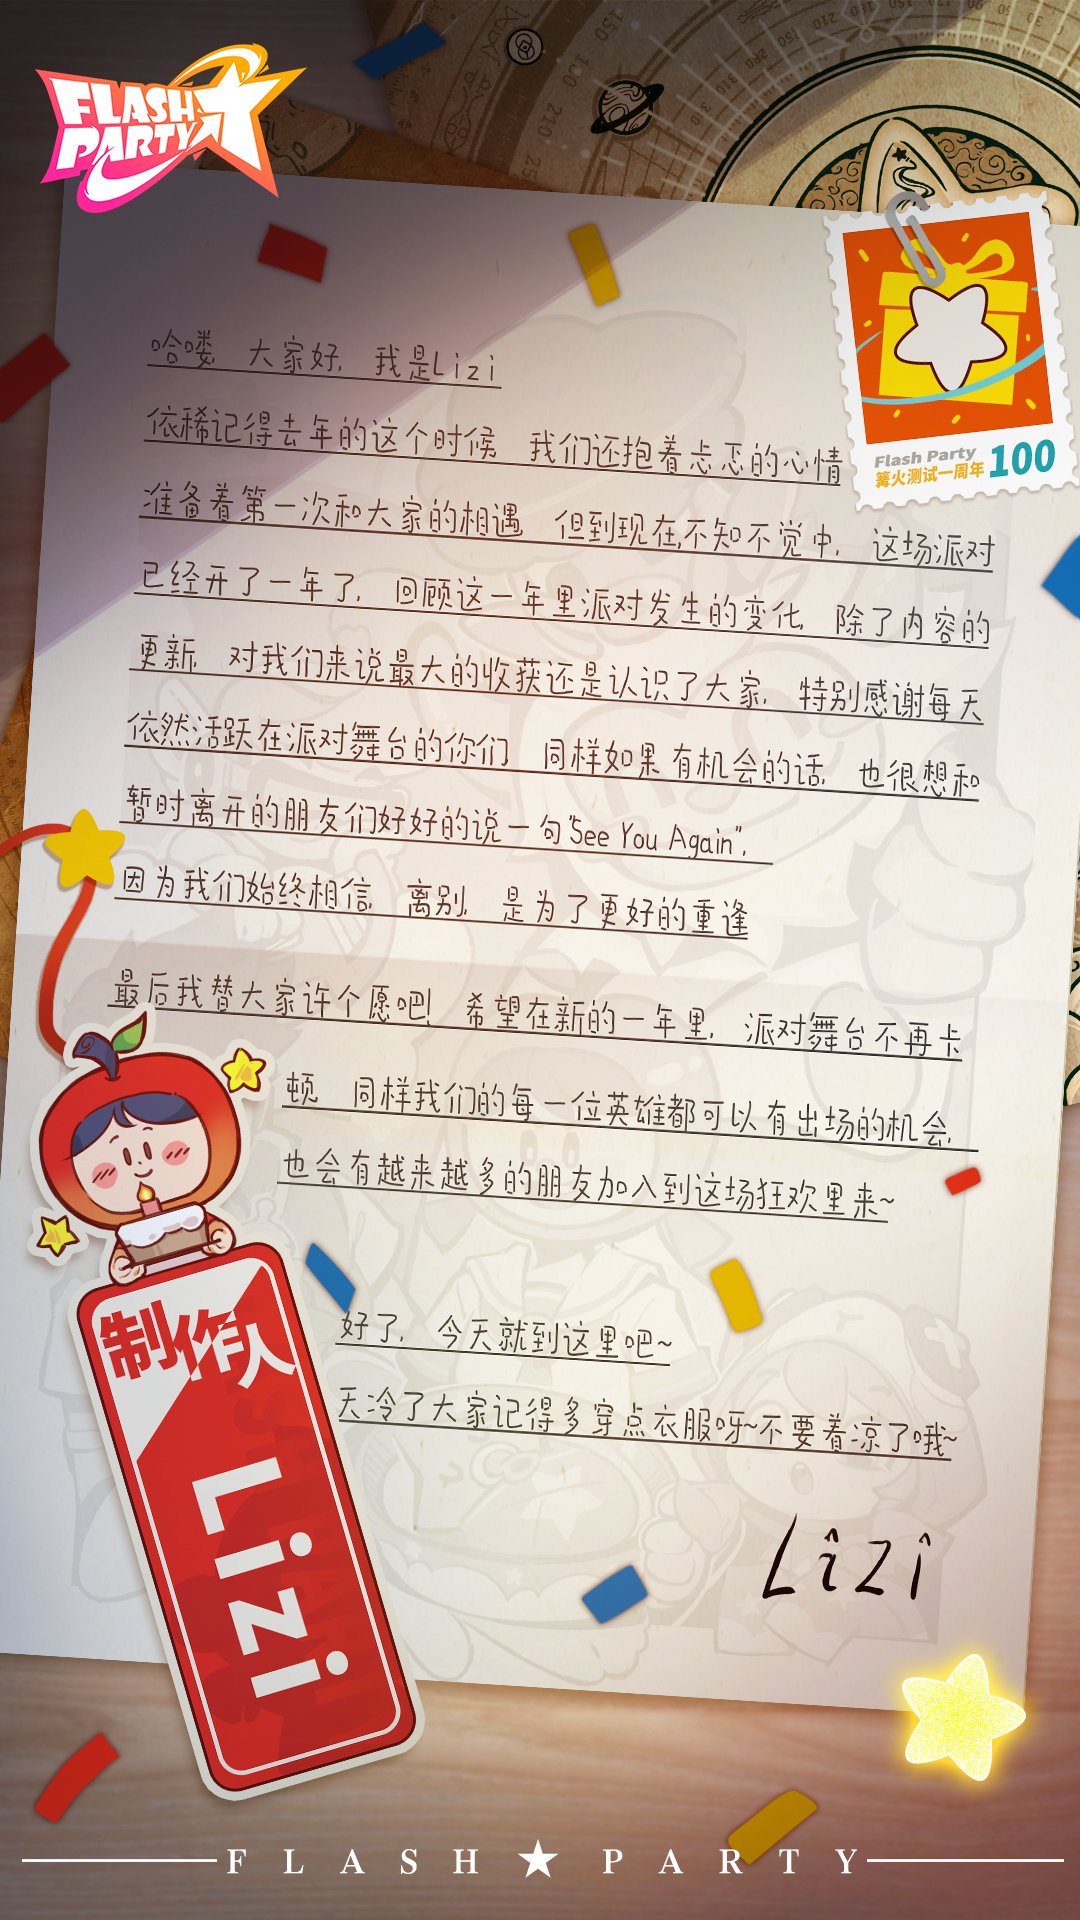 FLASH
PARTY
Flash Party
篝火测试一周年 100
哈喽，大家好，我是Lizi
依稀记得去年的这个时候，我们还抱着忐忑的心情
准备着第一次和大家的相遇，但到现在，不知不觉中，这场派对
已经开了一年了，回顾这一年里派对发生的变化，除了内容的
更新，对我们来说最大的收获还是认识了大家，特别感谢每天
依然活跃在派对舞台的你们，同样如果有机会的话，也很想和
暂时离开的朋友们好好的说一句"See You Again"，
因为我们始终相信，离别，是为了更好的重逢
最后我替大家许个愿吧！希望在新的一年里，派对舞台不再卡
顿，同样我们的每一位英雄都可以有出场的机会，
也会有越来越多的朋友加入到这场狂欢里来~
好了，今天就到这里吧~
天冷了大家记得多穿点衣服呀~不要着凉了哦~
Lizi
制作人
Lizi
FLASH★PARTY